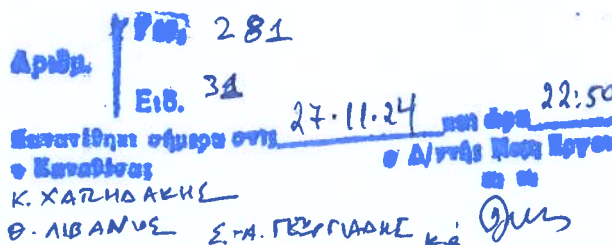 Αριθμ. Γεν. 281
Ειδ. 31
Κατατίθηκε σήμερα στις 27.11.24 και ώρα 22:50
ο Καταθέσας ο Δ/ντής Νομ. Έργου
Κ. ΧΑΤΖΗΔΑΚΗΣ
Θ. ΛΙΒΑΝΙΟΣ Σ.-Α. ΓΕΩΡΓΙΑΔΗΣ κ.ά